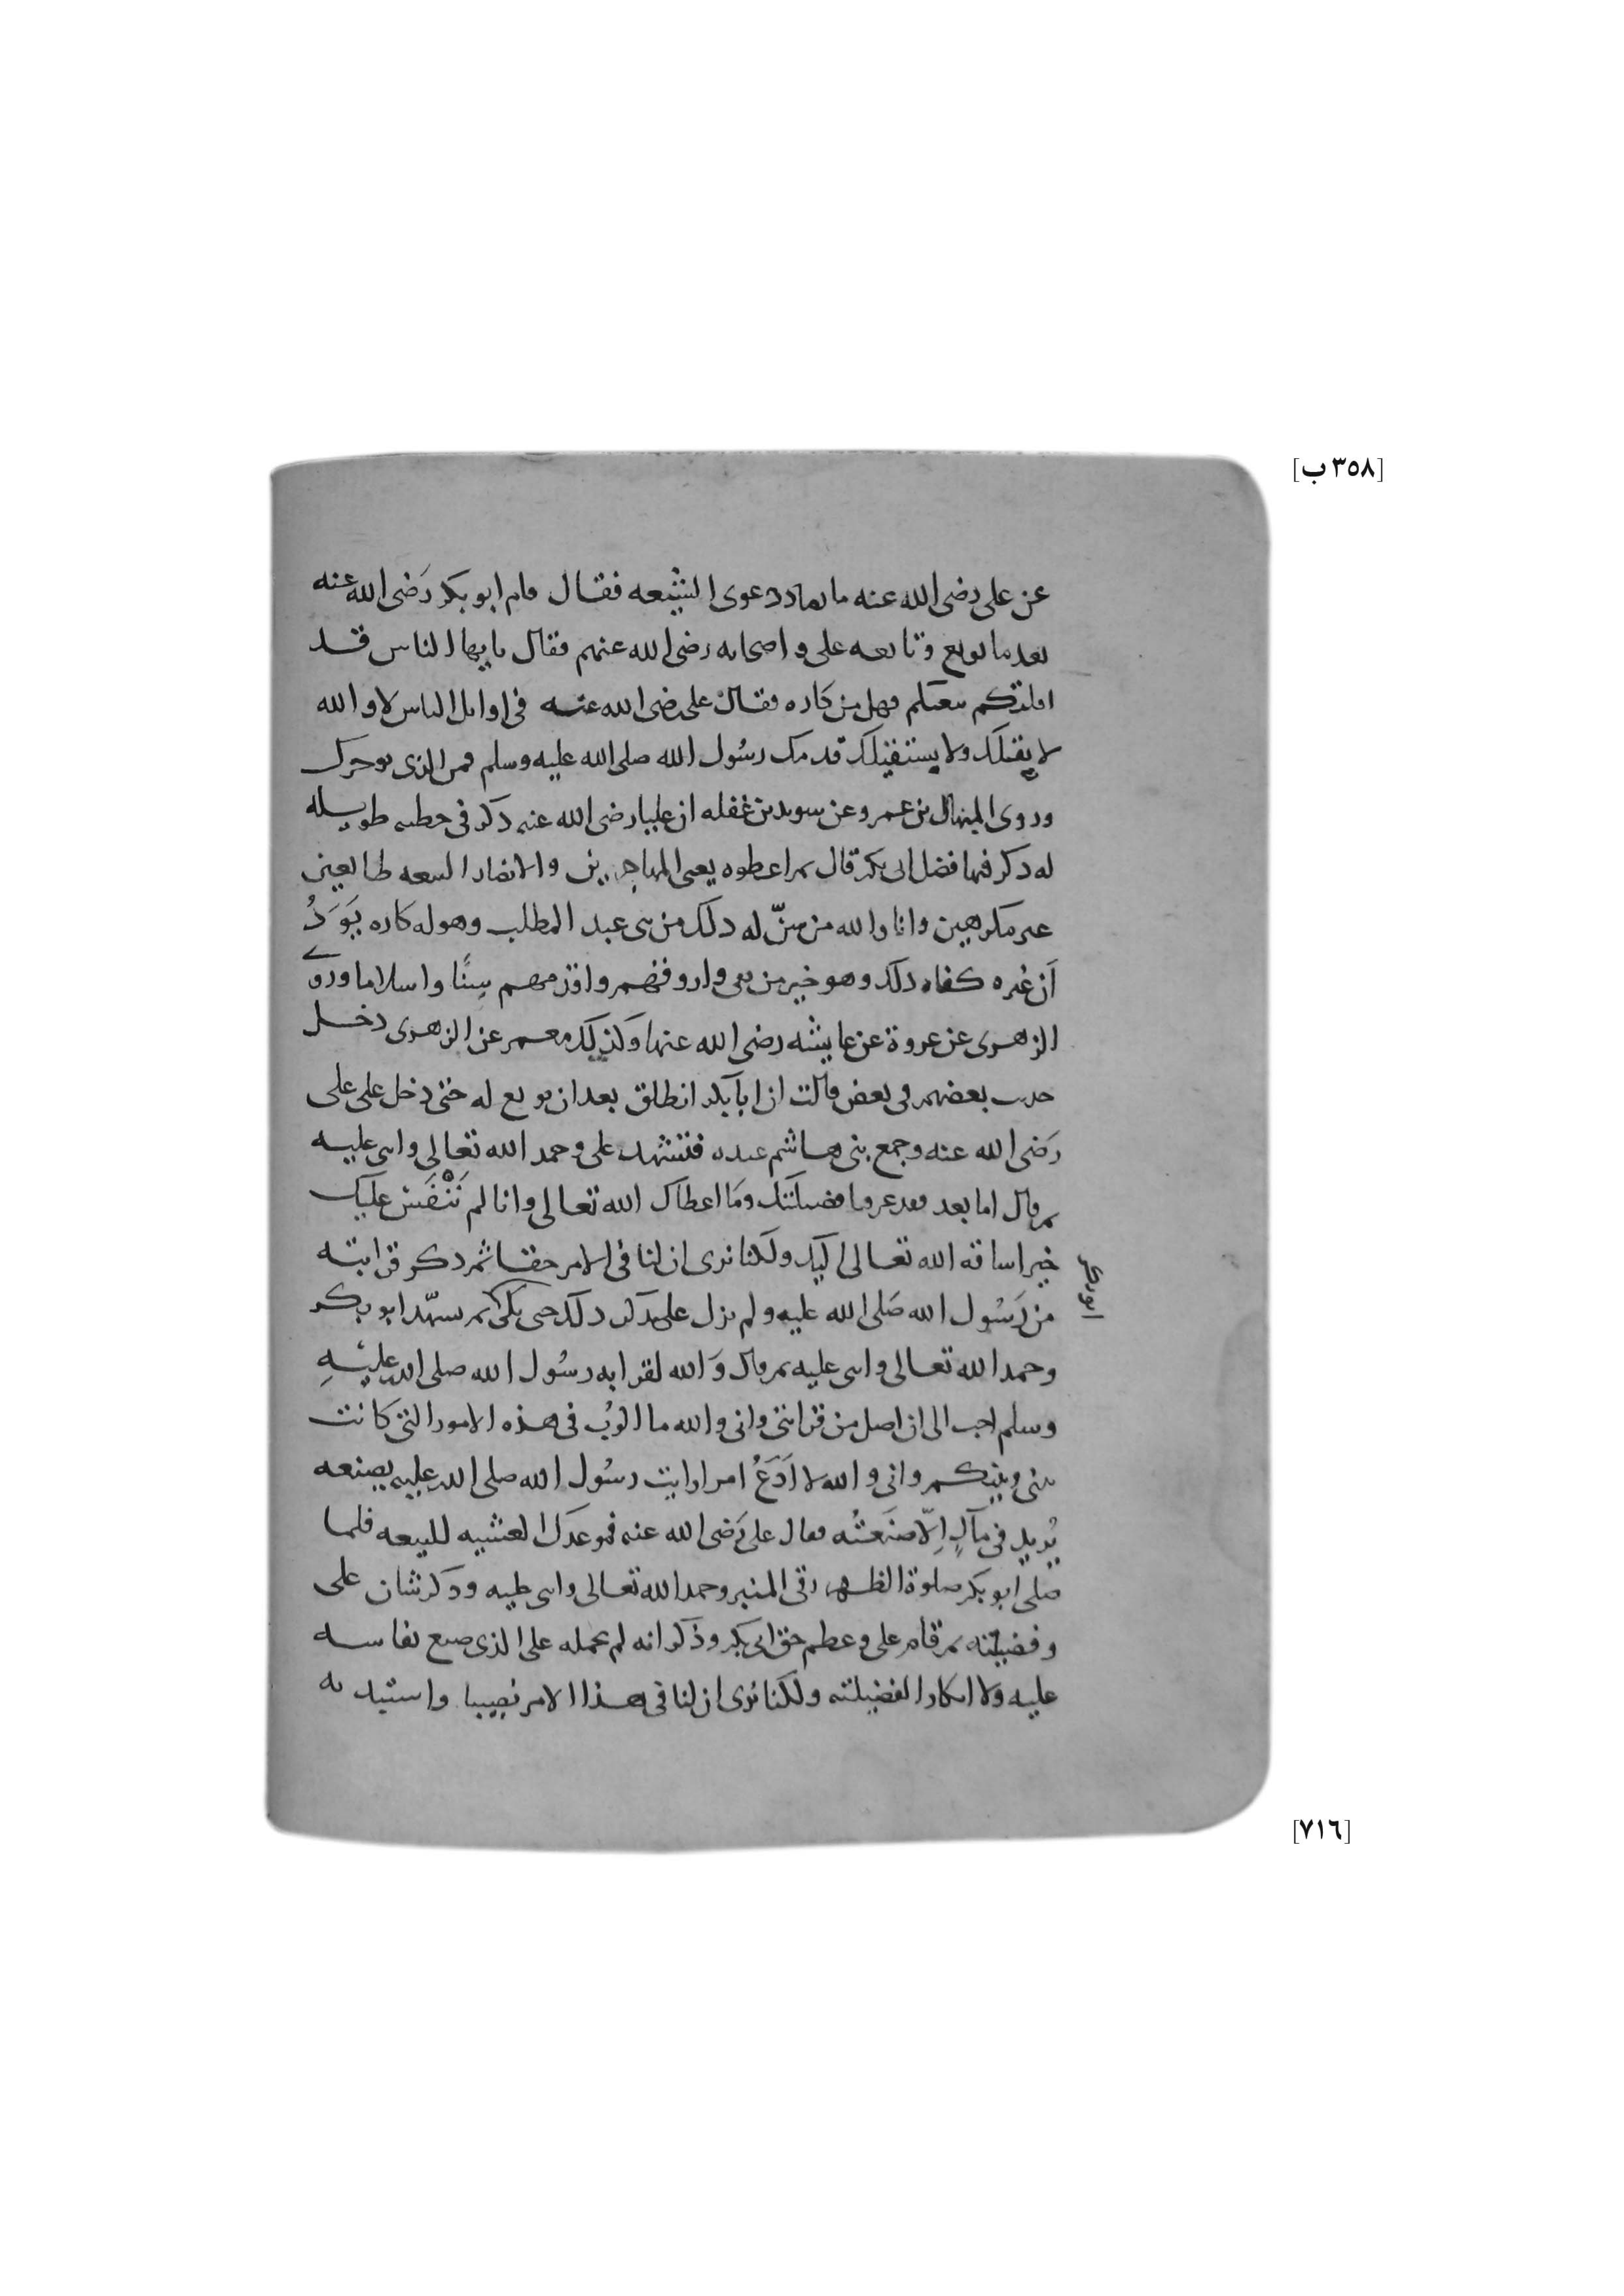 [٣٥٨ ب]
عن على رضى الله عنه ما يضادد دعوى الشيعه فقال قام ابو بكر رَضى الله عنه
بعد ما بويع وتابعه على واصحابه رضى الله عنهم فقال يايها الناس قد
اقلتكم بيعتكم فهل من كاره فقال على رضى الله عنه فى اوايل الناس لا والله
لا يقيلك ولا يستقيلك قدمك رسُول الله صلى الله عليه وسلم فمن الذى يوخرك
وروى المنهال بن عمرو عن سويد بن غفله ان عليا رضى الله عنه ذكر فى خطبه طويله
له ذكر فيها فضل ابى بكر قال ثم اعطوه يعنى المهاجرين والانصار البيعه طايعين
غير مكرهين وانا والله من سنّ له ذلك من بنى عبد المطلب وهو له كاره يَوَدُّ
اَن غيره كفاه ذلك وهو خير من بقى واروفهم واقدمهم سِنًّا واسلاما وروى
الزهرى عن عروة عن عايشه رضى الله عنها وكذلك معمر عن الزهرى دخل
حديث بعضهم فى بعض قالت ان ابا بكر انطلق بعد ان بويع له حتى دخل على على
رَضى الله عنه وجمع بنى هاشم عنده فتشهد على وحمد الله تعالى واثنى عليه
ثم قال اما بعد فقد عرفنا فضيلتك وَما اعطاك الله تعالى وانا لم نَنْفَسْ عليك
خيرا ساقه الله تعالى اليك ولكنا نرى ان لنا فى الامر حقا ثم ذكر قرابته
من رَسُول الله صَلى الله عليه ولم يزل على يذكر ذلك حتى بكى ثم تشهّد ابو بكر
وحمد الله تعالى واثنى عليه ثم قال وَالله لقرابه رسُول الله صلى الله عليْهِ
وسلم احب الى ان اصل من قرابتى وانى والله ما الوتُ فى هذه الامور التى كانت
بينى وبينكم وانى والله لا اَدَعُ امرا رايت رسُول الله صلى الله عليه يصنعه
يُريد فى مآلٍ اِلّا صنَعتُه فقال على رَضى الله عنه موعدك العشيه للبيعه فلما
صلى ابو بكر صلوة الظهر رقى المنبر وحمد الله تعالى واثنى عليه وذكر شان على
وفضيلته ثم قام على وعظم حق ابى بكر وذكر انه لم يحمله على الذى صنع نفاسه
عليه ولا انكار الفضيلته ولكنا نرى ان لنا فى هذا الامر نصيبا واستبد به
[٧١٦]